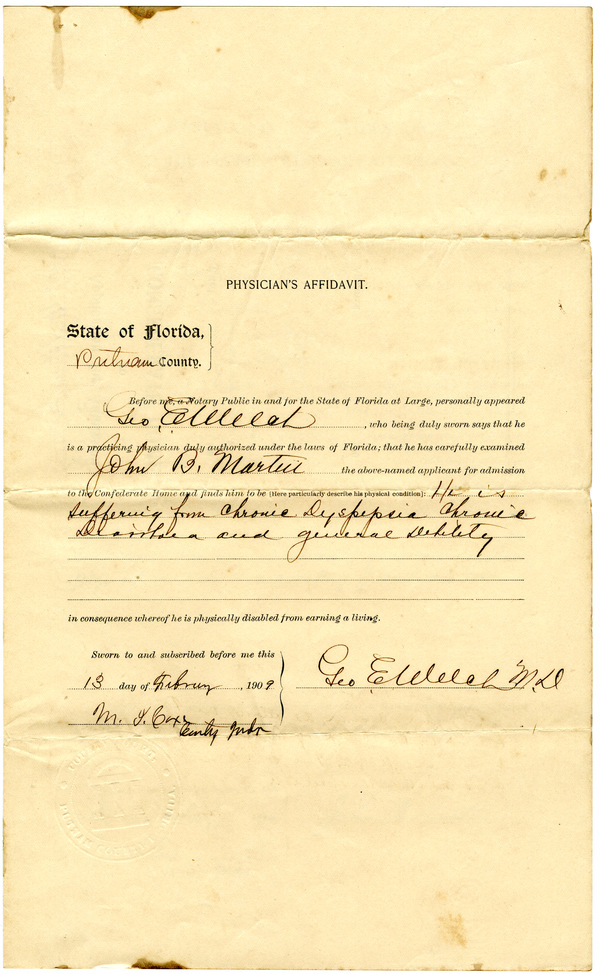 PHYSICIAN'S AFFIDAVIT.
State of Florida,
Putnam County.
Before me, a Notary Public in and for the State of Florida at Large, personally appeared
Geo. E Welch, who being duly sworn says that he
is a practicing physician duly authorized under the laws of Florida; that he has carefully examined
John B. Martin the above-named applicant for admission
to the Confederate Home and finds him to be [Here particularly describe his physical condition]: He is
suffering from Chronic Dyspepsia Chronic
Diarrhoea and general debility
in consequence whereof he is physically disabled from earning a living.
Sworn to and subscribed before me this
13 day of February, 1909
Geo. E Welch M.D
M. I. Cox
County Judge